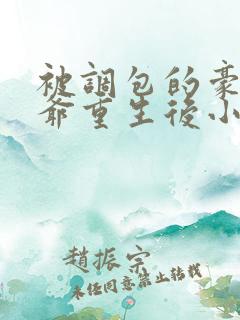 被調包的豪
爺重生後小
趙振宗
未任同意禁止轉載